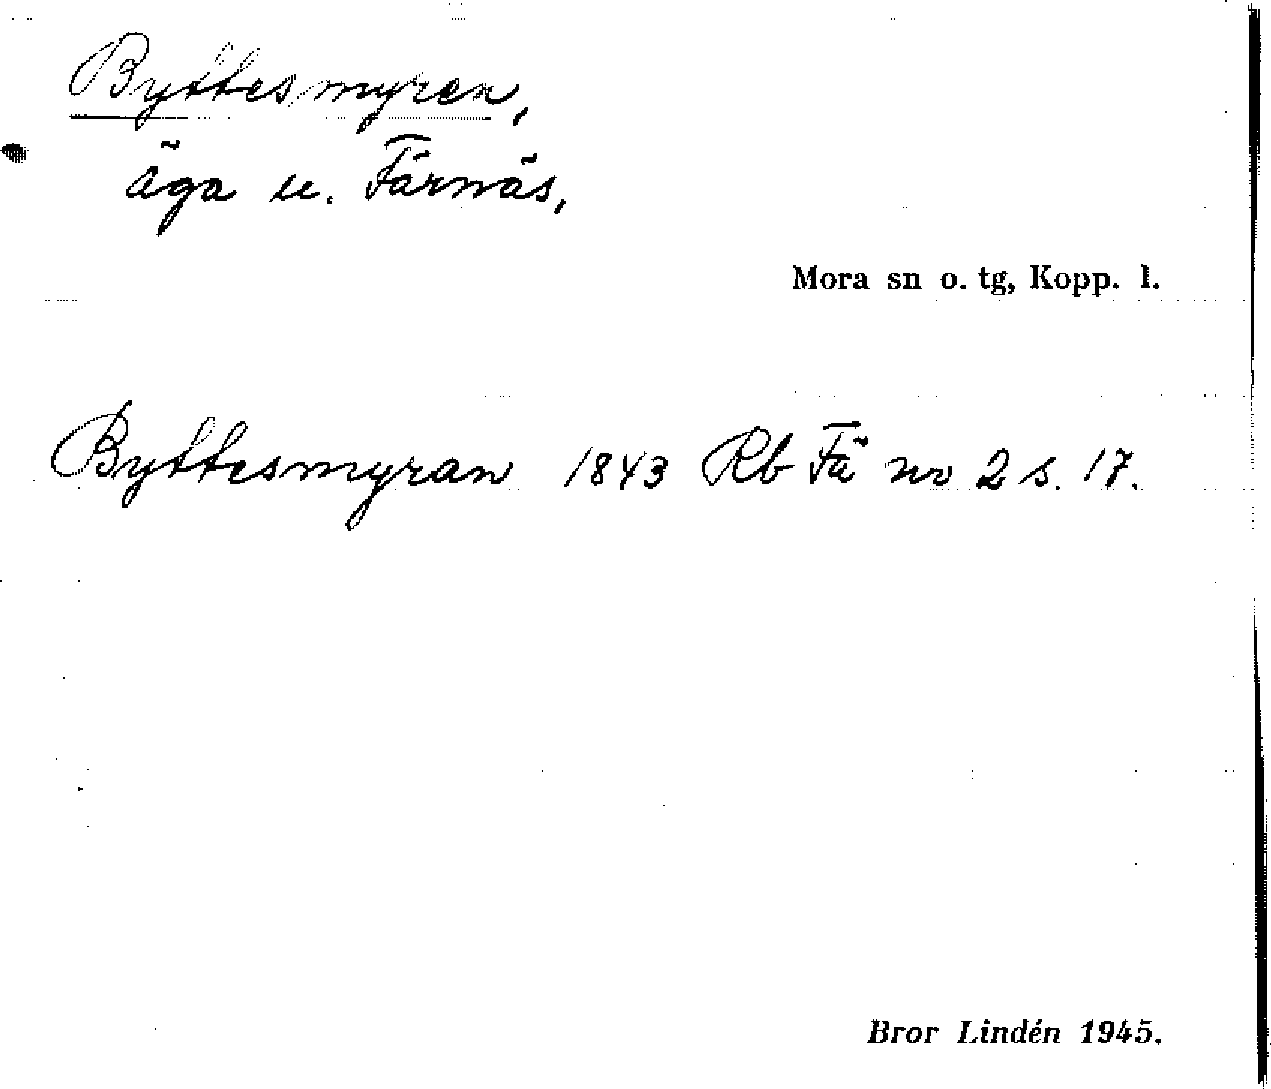 Byttesmyren,
äga u. Färnäs,
Mora sn o. tg, Kopp. l.
Byttesmyran 1843 Rb Fä no 2 s. 17.
Bror Lindén 1945.